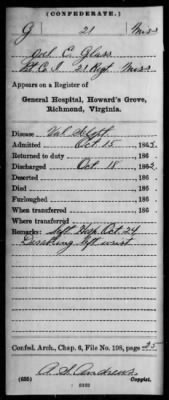 (CONFEDERATE.)
G 21 Miss
Joel C. Glass
Pt Co. I, 21 Regt. Miss
Appears on a Register of
General Hospital, Howard's Grove,
Richmond, Virginia.
Disease
Admitted Oct. 15, 186
Returned to duty , 186
Discharged Oct. 18, 186
Deserted , 186
Died , 186
Furloughed , 186
When transferred , 186
Where transferred
Remarks: Left Hosp Oct. 24
left wrist
Confed. Arch., Chap. 6, File No. 198, page 25
(635) Copyist.